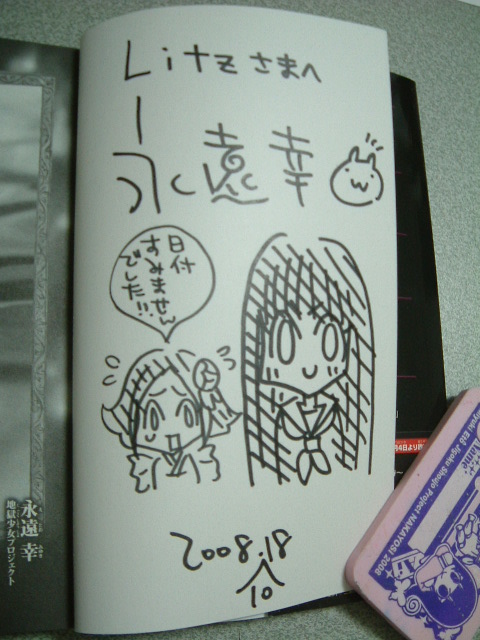 Litzさまへ
永遠幸
日付
すみません
でした!!
2008.18
10
永遠 幸
地獄少女プロジェクト
月4日より
Jigoku Shoujo Project NAKAYOSI 2008